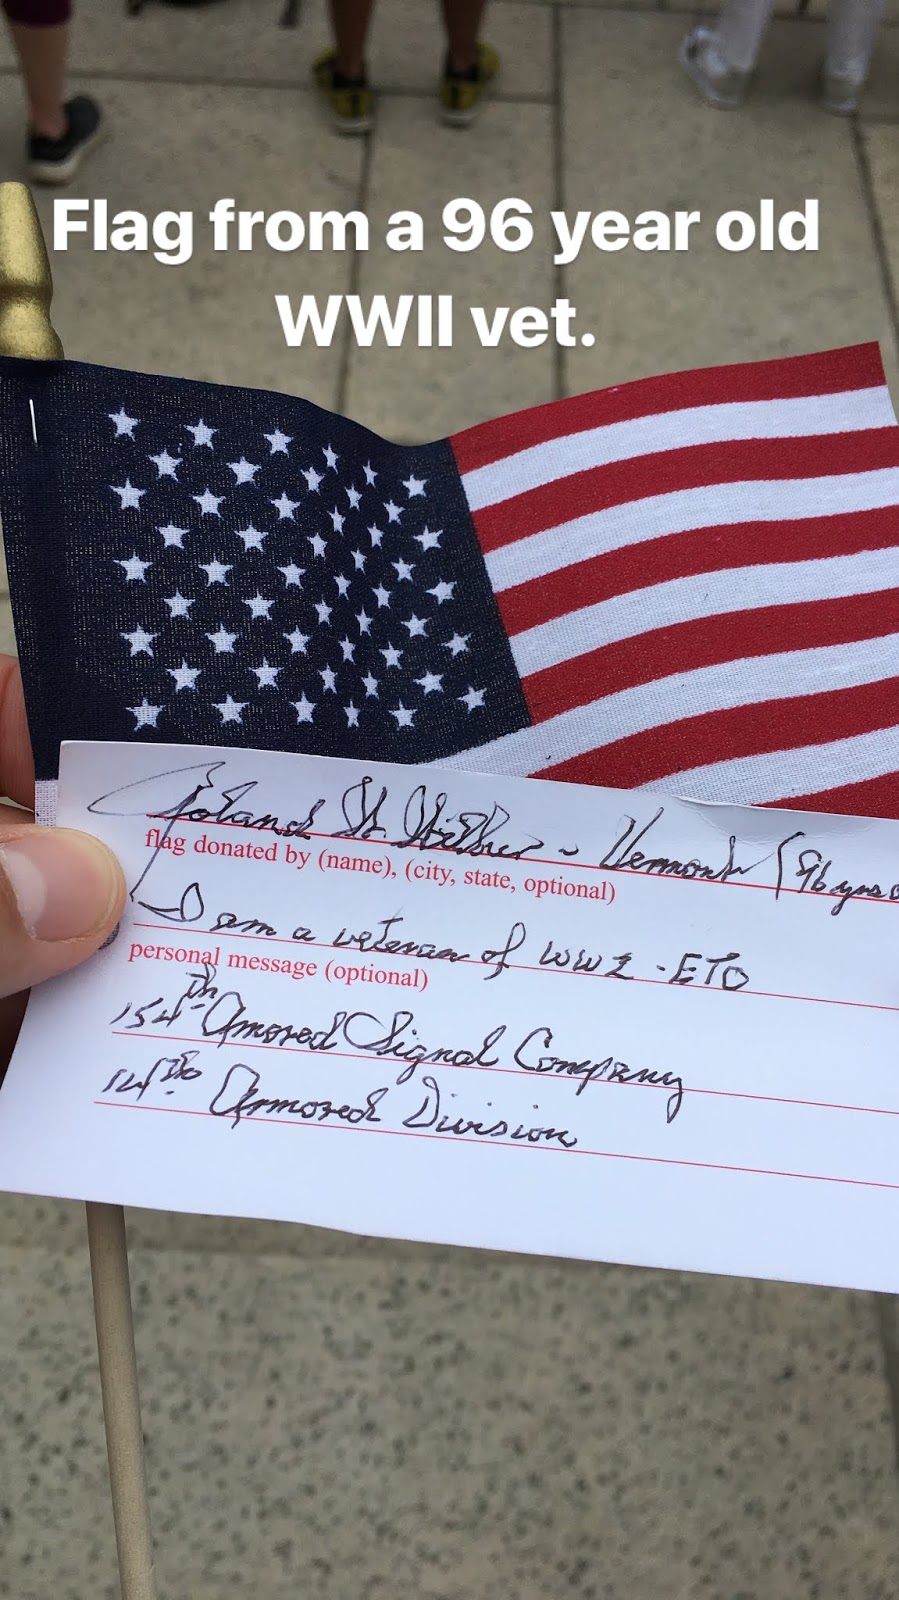 Flag from a 96 year old
WWII vet.
Roland St. - Vermont (96 yrs
flag donated by (name), (city, state, optional)
I am a veteran of WW2 - ETO
personal message (optional)
154th Amored Signal Company
14th Armored Division